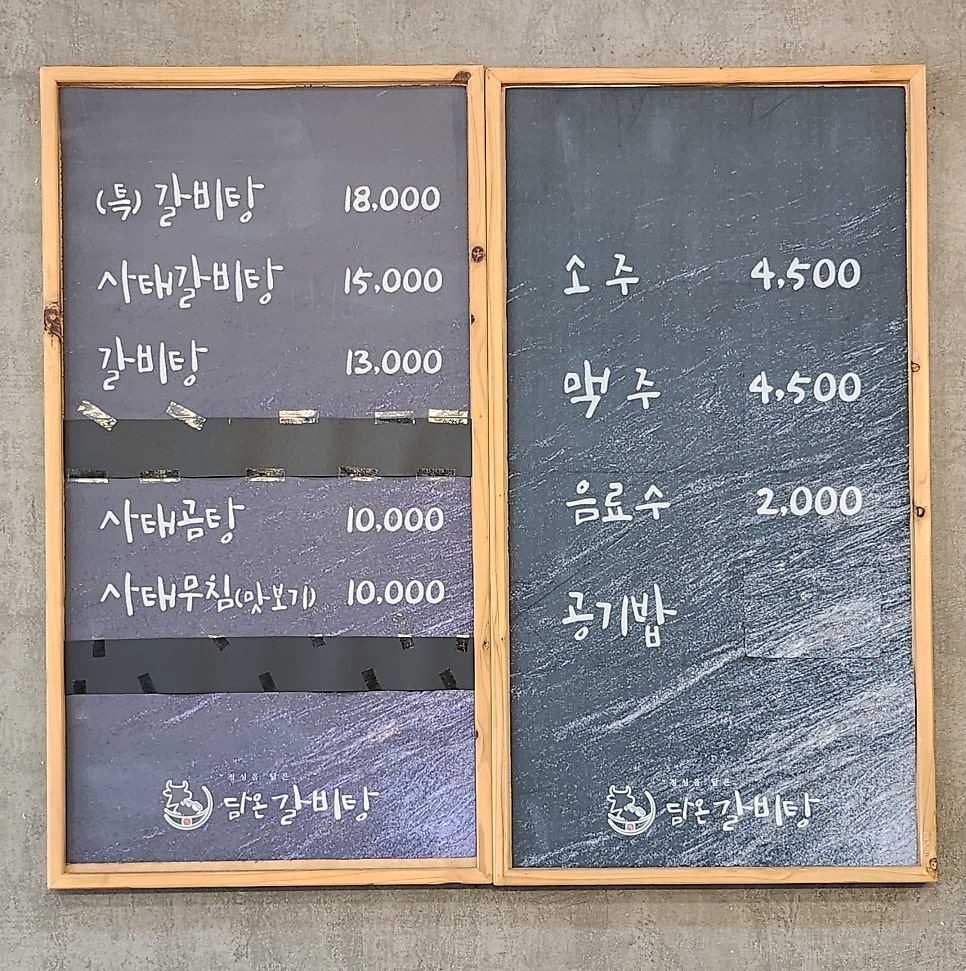 (특) 갈비탕 18,000
사태갈비탕 15,000
갈비탕 13,000
사태곰탕 10,000
사태무침(맛보기) 10,000
정성을 담은
담온갈비탕
소주 4,500
맥주 4,500
음료수 2,000
공기밥
정성을 담은
담온갈비탕